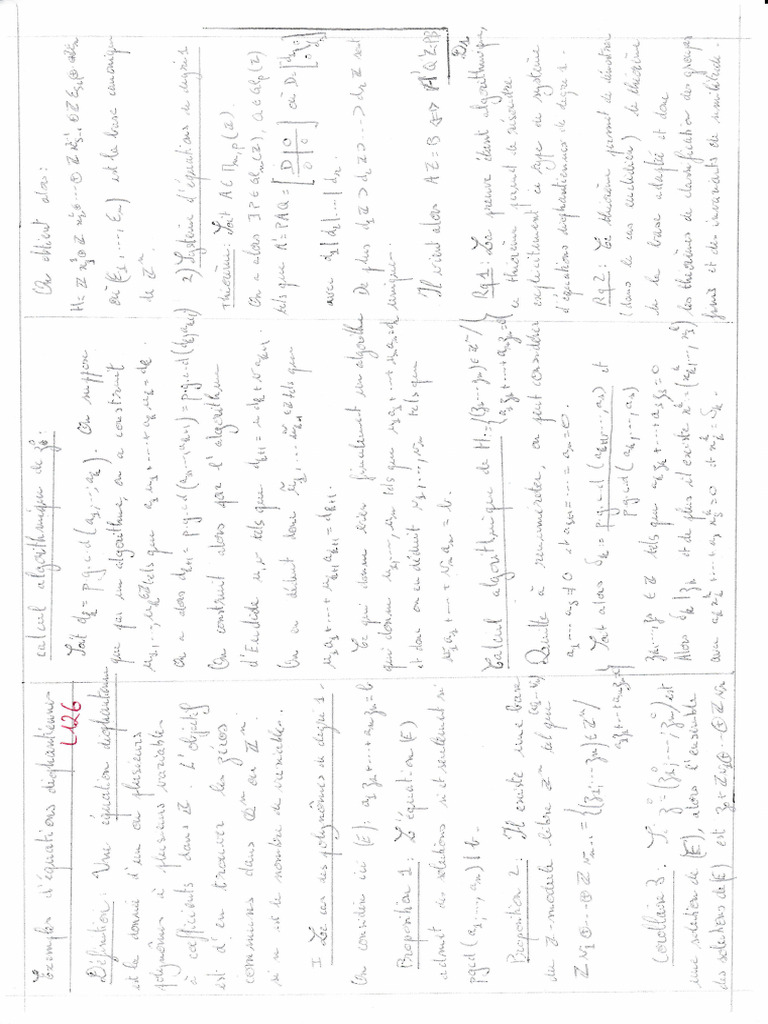 Exemples d'équations diophantiennes
L126
Définition: Une équation diophantienne
est la donnée d'un ou plusieurs
polynômes à plusieurs variables
à coefficients dans Z. L'objectif
est d'en trouver les zéros
communs dans Q^n ou Z^n
si n est le nombre de variables.
I Le cas des polynômes de degré 1.
On considère ici (E): a_1 z_1 + ... + a_n z_n = b
Proposition 1: L'équation (E)
admet des solutions si et seulement si
pgcd(a_1, ..., a_n) | b.
Proposition 2: Il existe une base (v_1 ... v_n)
du Z-module libre Z^n tel que
Z v_1 ⊕ ... ⊕ Z v_{n-1} = {(z_1, ... z_n) ∈ Z^n / a_1 z_1 + ... + a_n z_n = 0}
Corollaire 3: Si z° = (z_1°, ..., z_n°) est
une solution de (E), alors l'ensemble
des solutions de (E) est z_0 + Z v_1 ⊕ ... ⊕ Z v_{n-1}
calcul algorithmique de z_0:
Soit d_k = p.g.c.d(a_1, ..., a_k). On suppose
que par un algorithme, on a construit
u_1, ..., u_k ∈ Z tels que a_1 u_1 + ... + a_k u_k = d_k.
On a alors d_{k+1} = p.g.c.d(a_1, ..., a_{k+1}) = p.g.c.d(d_k, a_{k+1})
On construit alors par l'algorithme
d'Euclide u, v tels que d_{k+1} = u d_k + v a_{k+1}
On en déduit donc ũ_1, ... ũ_{k+1} ∈ Z tels que
ũ_1 a_1 + ... + ũ_{k+1} a_{k+1} = d_{k+1}.
Ce qui donne finalement un algorithme
qui donne u_1, ..., u_n tels que u_1 a_1 + ... + u_n a_n = d_n
et donc on en déduit v_1, ..., v_n tels que
v_1 a_1 + ... + v_n a_n = b.
Calcul algorithmique de H = {(z_1 ... z_n) ∈ Z^n / a_1 z_1 + ... + a_n z_n = 0}
Quitte à renuméroter, on peut considérer
a_1 ... a_s ≠ 0 et a_{s+1} = ... = a_n = 0.
Soit alors δ_k = p.g.c.d(a_{k+1}, ..., a_s) / p.g.c.d(a_k, ..., a_s) et
z_k, ..., z_s ∈ Z tels que a_k z_k + ... + a_s z_s = 0
Alors δ_k | z_k et de plus il existe x^k = (x_1^k, ..., x_n^k)
avec a_k x_k^k + ... + a_s x_s^k = 0 et x_k^k = δ_k.
On obtient alors:
où (E_1, ..., E_n) est la base canonique
de Z^n.
2) Système d'équations de degré 1
Théorème: Soit A ∈ M_{n,p}(Z).
On a alors ∃ P ∈ GL_n(Z), Q ∈ GL_p(Z)
tels que A' = PAQ = [D 0 / 0 0] où D = [d_1 0 / 0 d_r]
avec d_1 | d_2 | ... | d_r.
De plus d_1 Z ⊃ d_2 Z ⊃ ... ⊃ d_r Z sont
uniques.
Il vient alors AZ = B ⟺ A'Q^{-1}Z = PB
Rq 1: La preuve étant algorithmique,
ce théorème permet de résoudre
explicitement ce type de système
d'équations diophantiennes de degré 1.
Rq 2: Ce théorème permet de démontrer
(dans le cas euclidien) le théorème
de la base adaptée et donc
les théorèmes de classification des groupes
finis et des invariants de similitude.